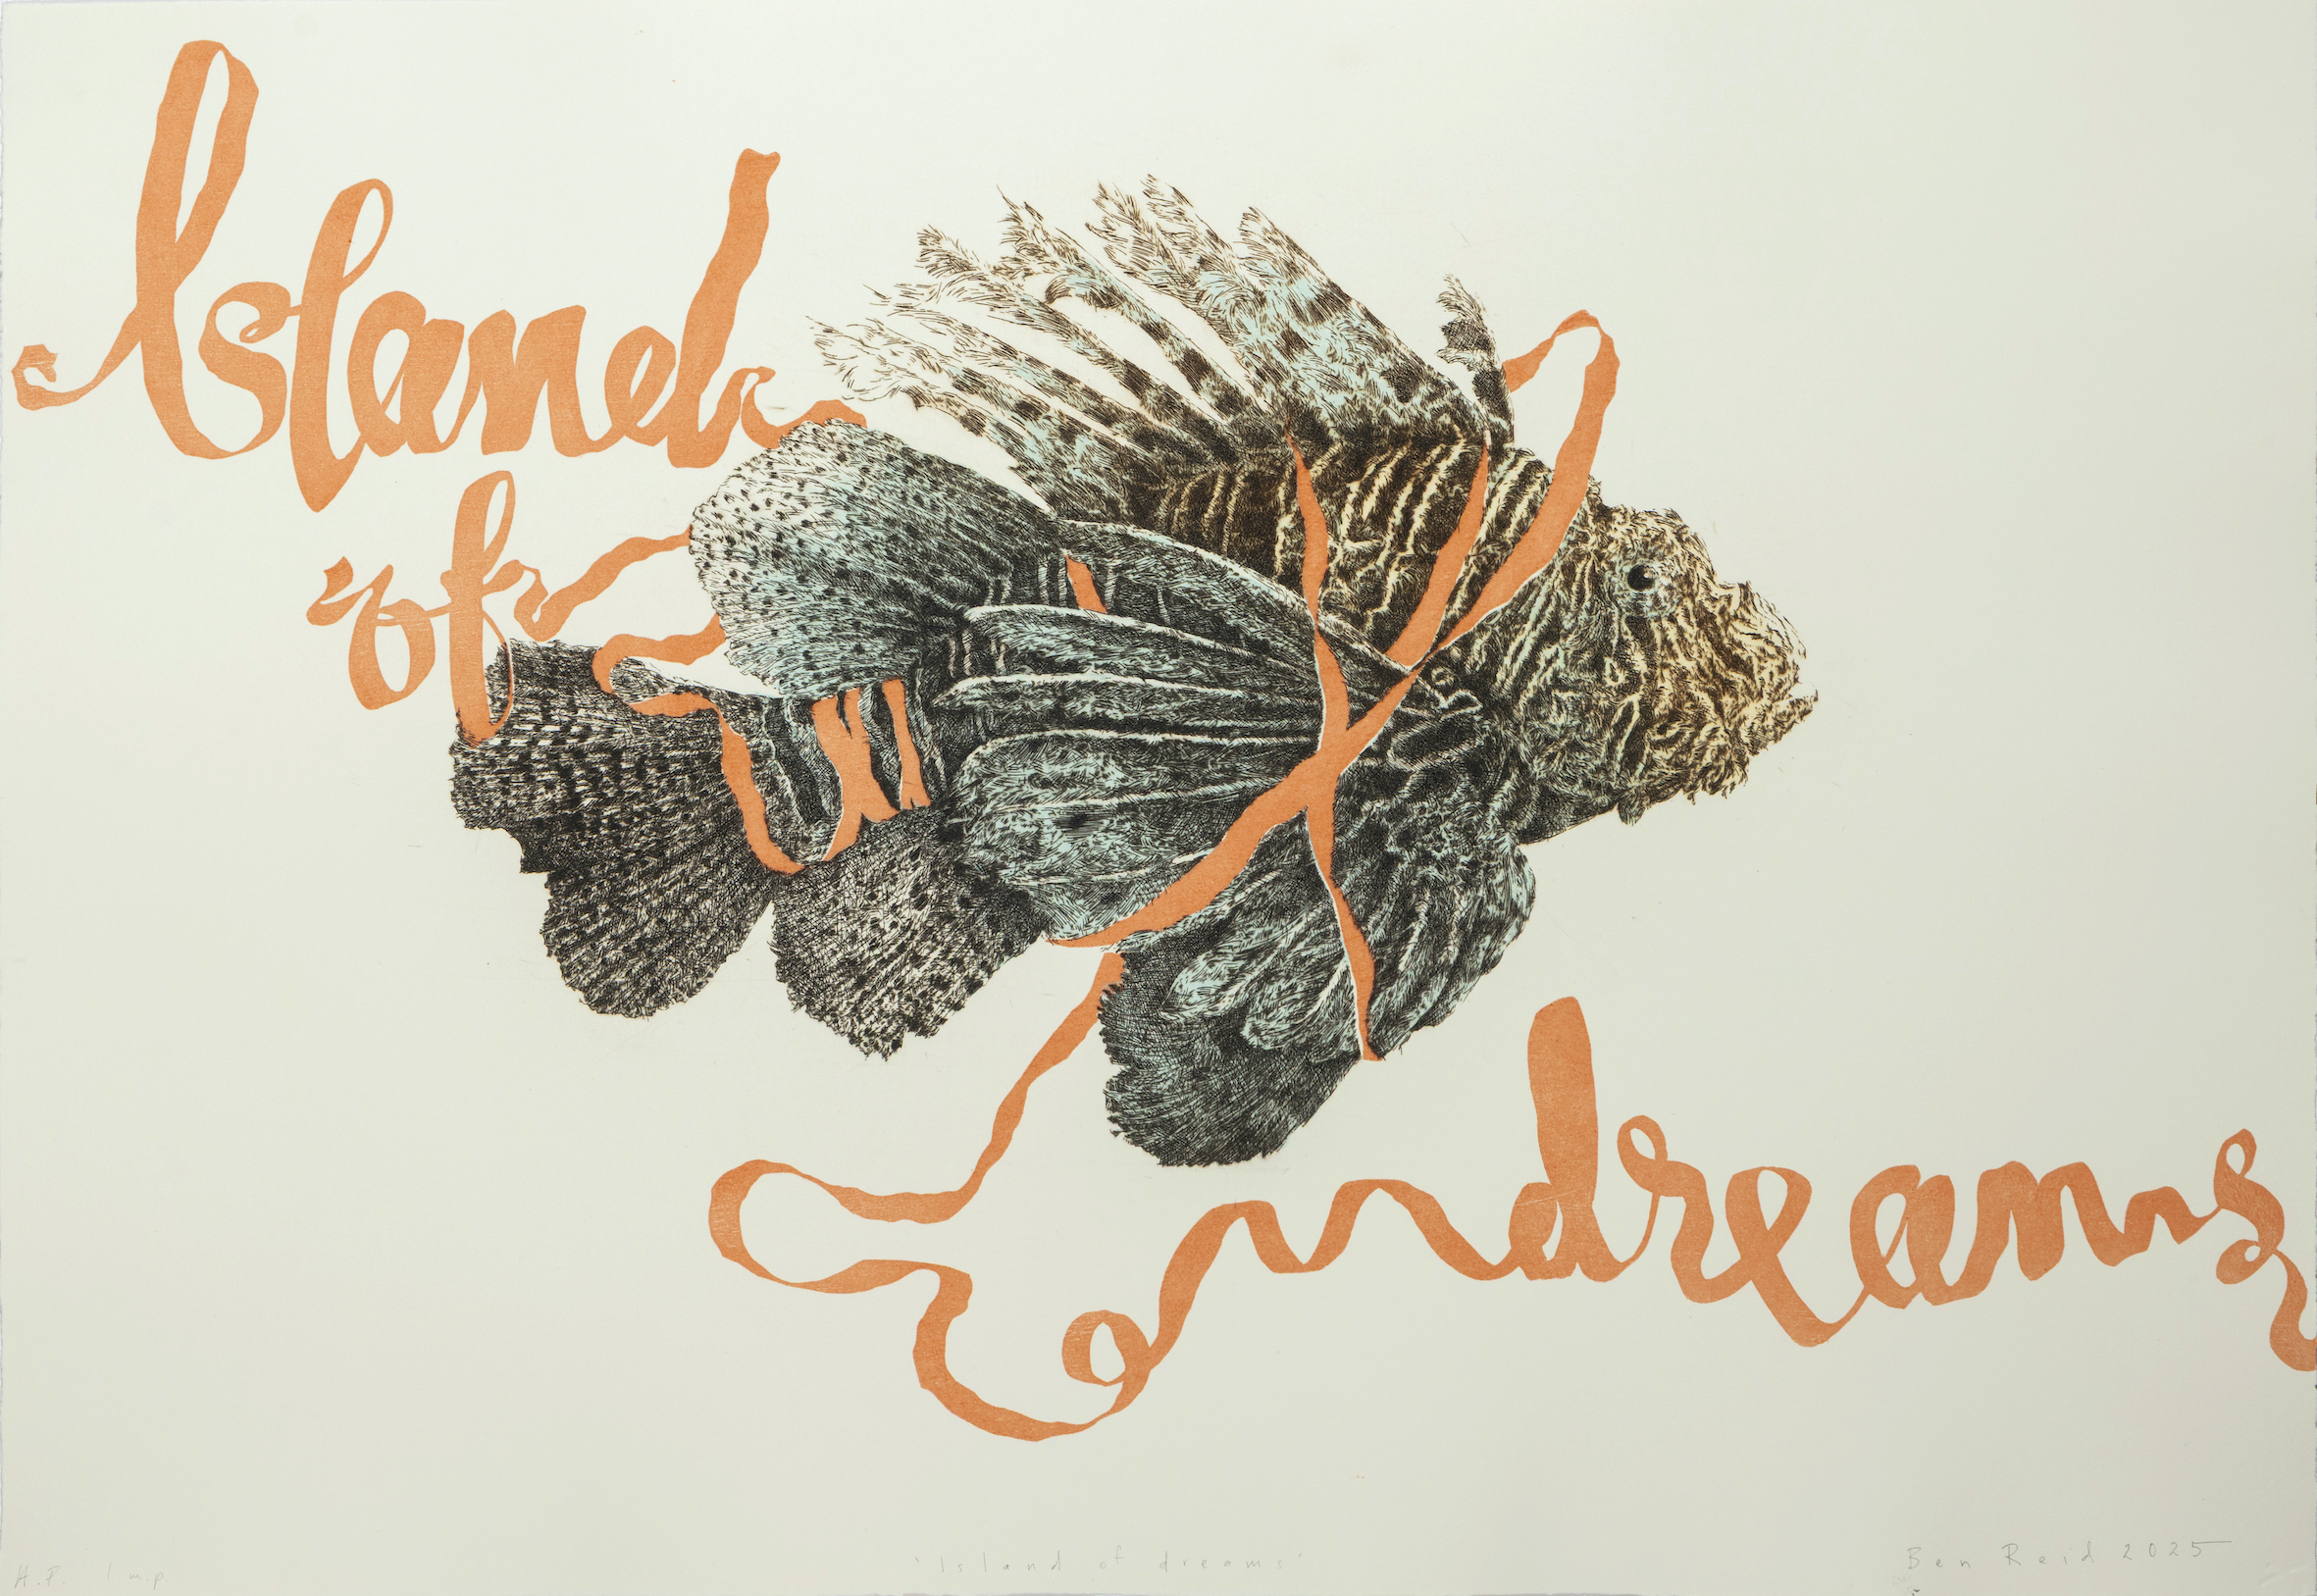 Island
of
dreams
A.P. Imp. 'Island of dreams' Ben Reid 2025